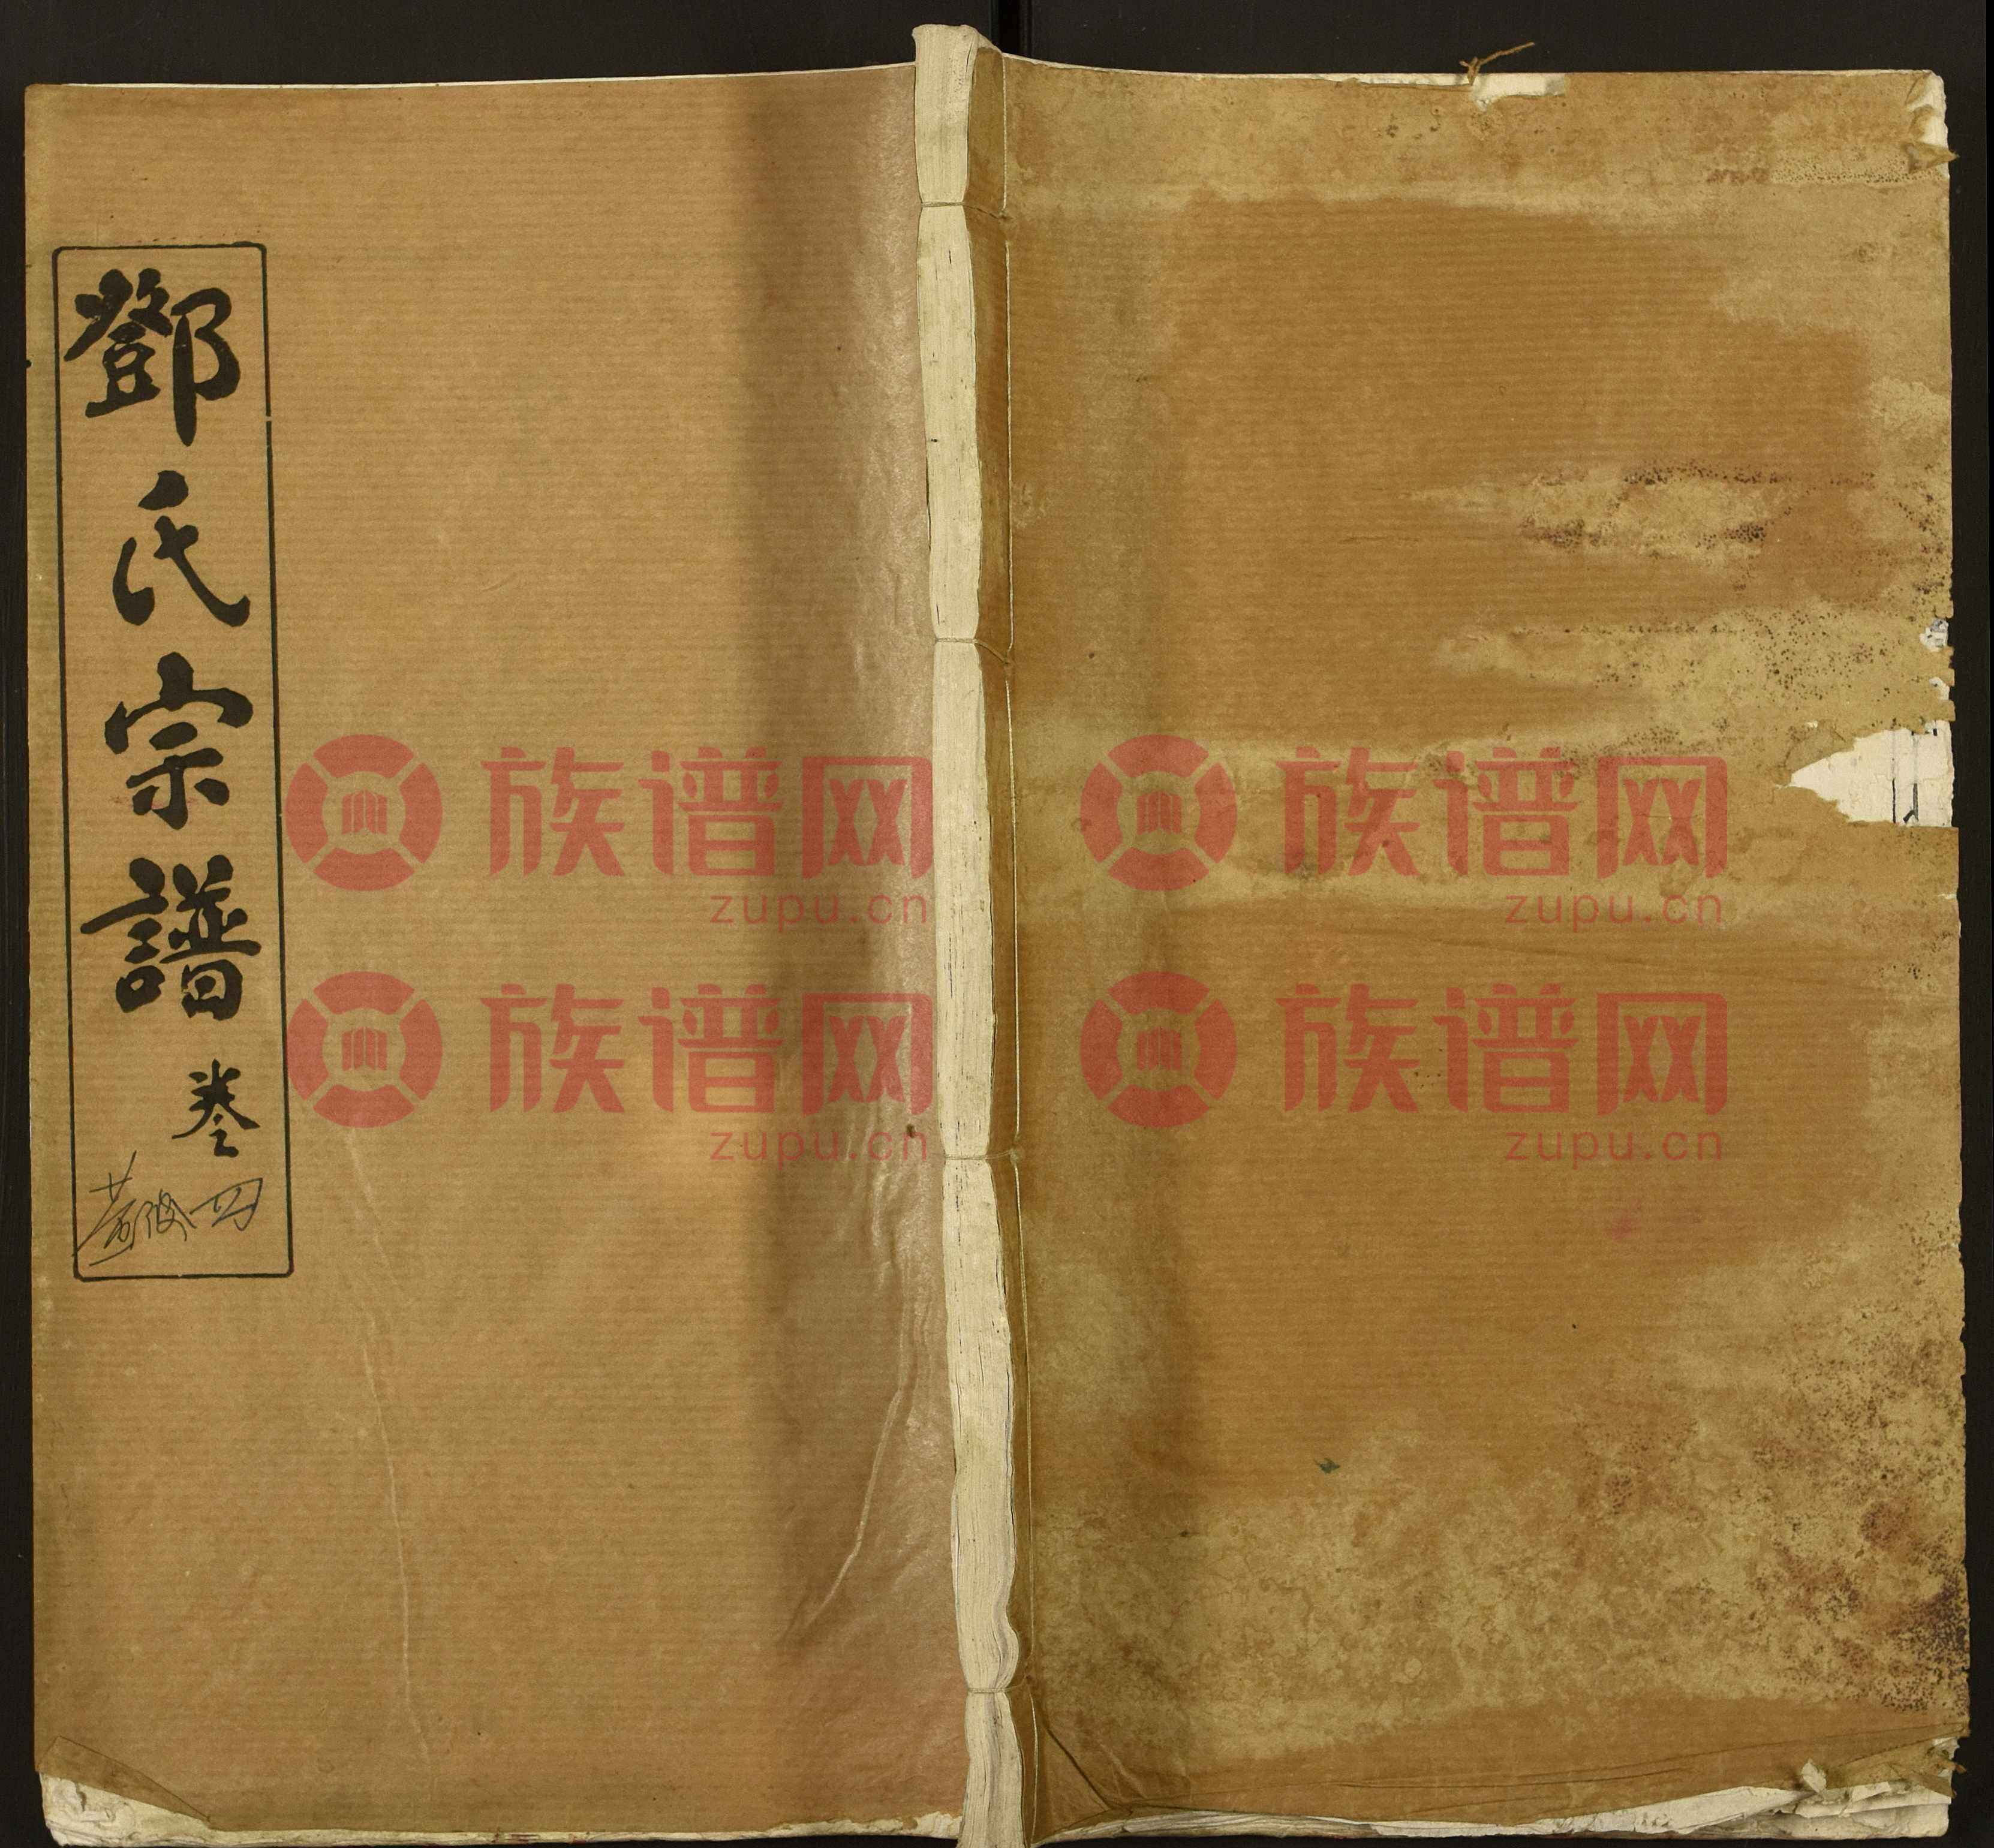 鄧氏宗譜 卷
四
族谱网 族谱网
zupu.cn zupu.cn
族谱网 族谱网
zupu.cn zupu.cn